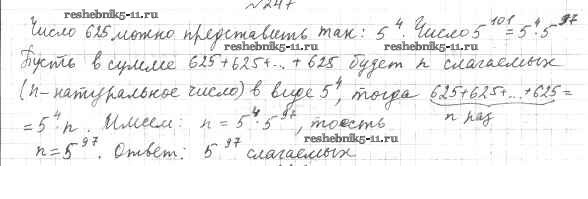 №247
reshebnik5-11.ru
Число 625 можно представить так: 5⁴. Число 5¹⁰¹ = 5⁴·5⁹⁷
reshebnik5-11.ru
Пусть в сумме 625+625+...+625 будет n слагаемых
(n-натуральное число) в виде 5⁴, тогда 625+625+...+625=
n раз
=5⁴·n. Имеем: n=5⁴·5⁹⁷, то есть
reshebnik5-11.ru
n=5⁹⁷. Ответ: 5⁹⁷ слагаемых